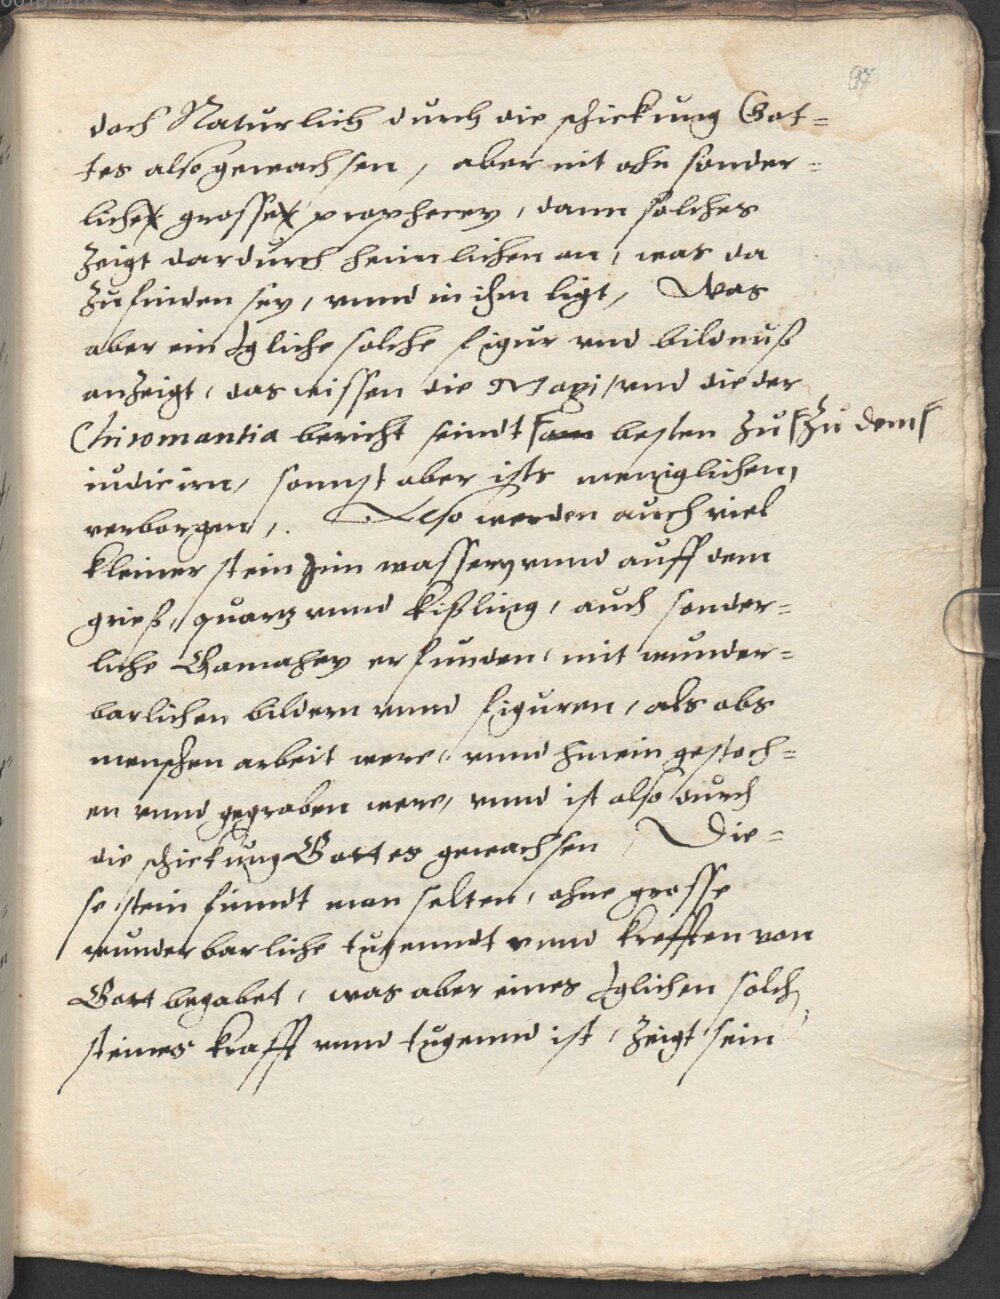 doch Naturlich durch die schickung Got=
tes also gewachsen, aber nit ohn sonder=
liche grosse prophecey, dann solches
Zeigt dardurch heimlichen an, was da
Zu finden sey, vnnd in ihm ligt, Was
aber ein Jgliche solche figur vnd bildnuß
anZeigt, das wissen die Magi, vnd die der
Chiromantia bericht seindt am besten Zu Zu dem
iudicirn, sonnst aber ists meniglichen,
verborgen,. Also werden auch viel
kleiner stein im wasser vnnd auff dem
grieß, quarz vnnd kißling, auch sonder=
liche Gamahey erfunden, mit wunder=
barlichen bildern vnnd figuren, als obs
menschen arbeit were, vnnd hinein gestoch=
en vnnd gegraben were, vnnd ist also durch
die schickung Gottes gewachsen, Die=
se stein findt man selten, ohne grosse
wunderbarliche tugenndt vnnd krefften von
Gott begabet, was aber eines Jglichen solch
steines krafft vnnd tugennd ist, Zeigt sein